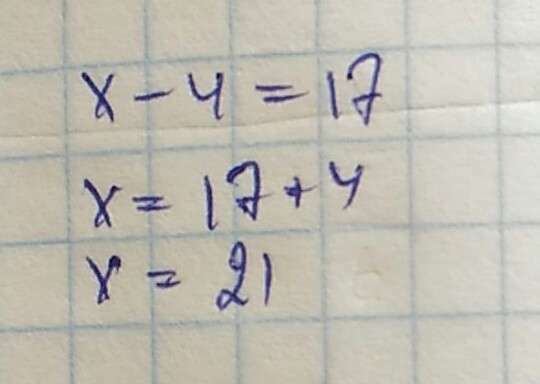 x - 4 = 17
x = 17 + 4
x = 21